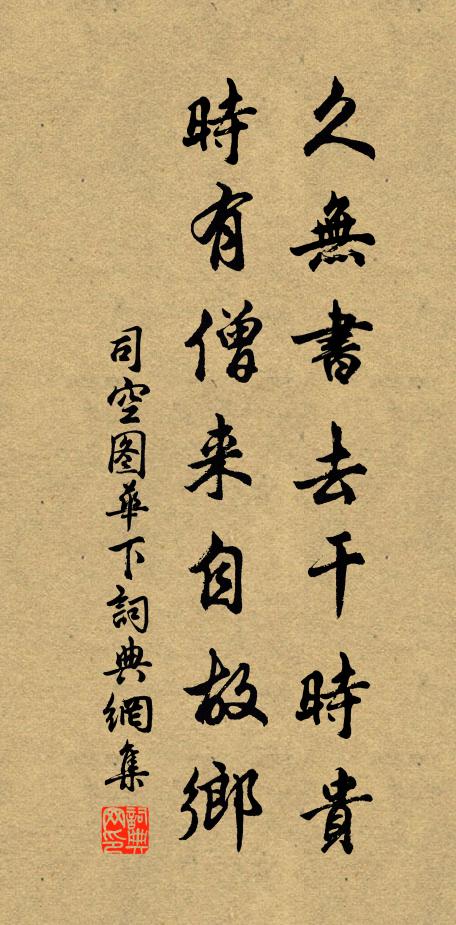 久無書去干時貴
時有僧来自故鄉
司空图華下詞典網集
詞典網印